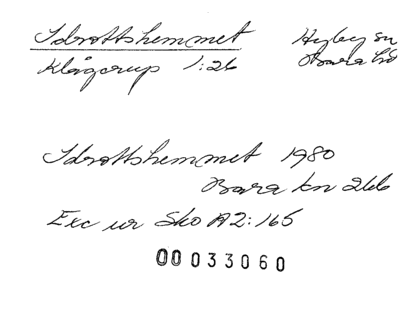 Idrottshemmet Hyby sn
Klågerup 1:26 Bara hd
Idrottshemmet 1980
Bara kn 266
Exc ur Sko A2:165
00033060